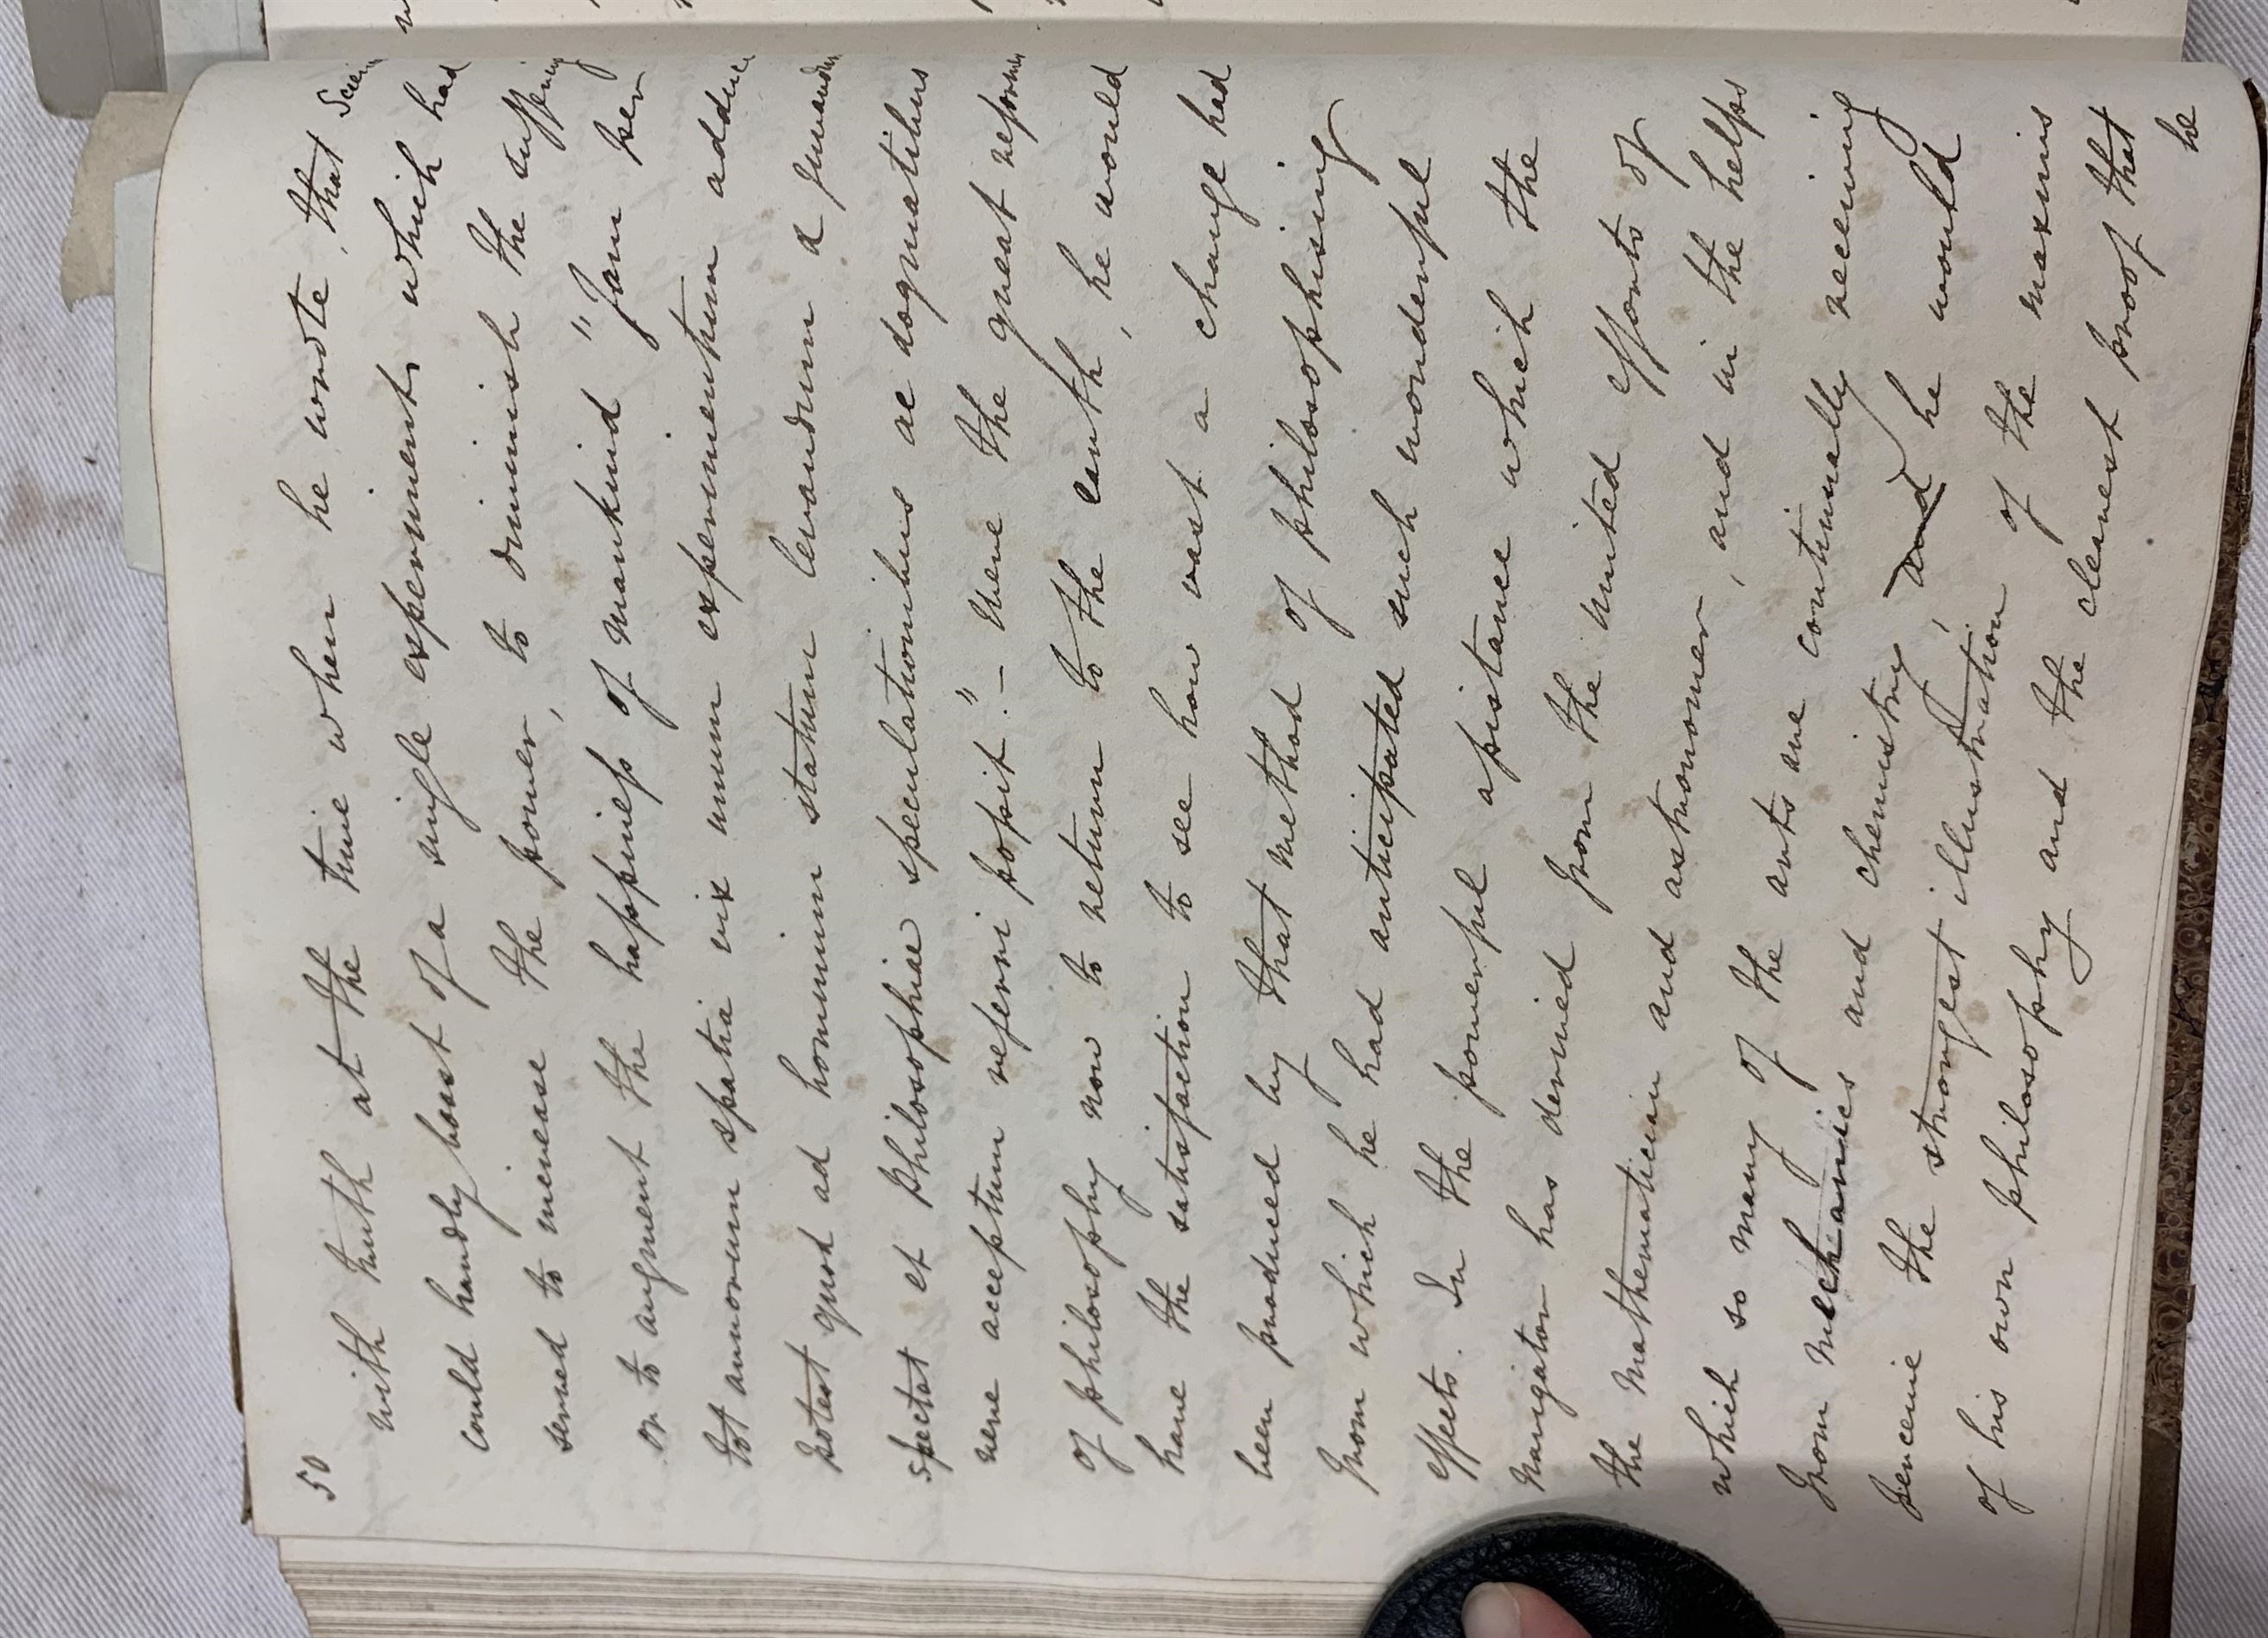 50
with truth at the time when he wrote, that Scien
could hardly boast of a single experiment, which had
served to increase the power, to diminish the suffering
or to augment the happiness of mankind "Jam per
tot annorum spatia vix unum experimentum adduci
potest quod ad hominum statum levandum &
spectat et philosophiae speculationibus ac dogmatibus
vere acceptum referri possit." — Were the great reformer
of philosophy now to return to the earth, he would
have the satisfaction to see how vast a change had
been produced by that method of philosophising
from which he had anticipated such wonderful
effects. In the powerful assistance which the
navigator has derived from the united efforts of
the mathematician and astronomer, and in the helps
which so many of the arts are continually receiving
from mechanics and chemistry, and he would
perceive the strongest illustration of the maxims
of his own philosophy and the clearest proof that
he